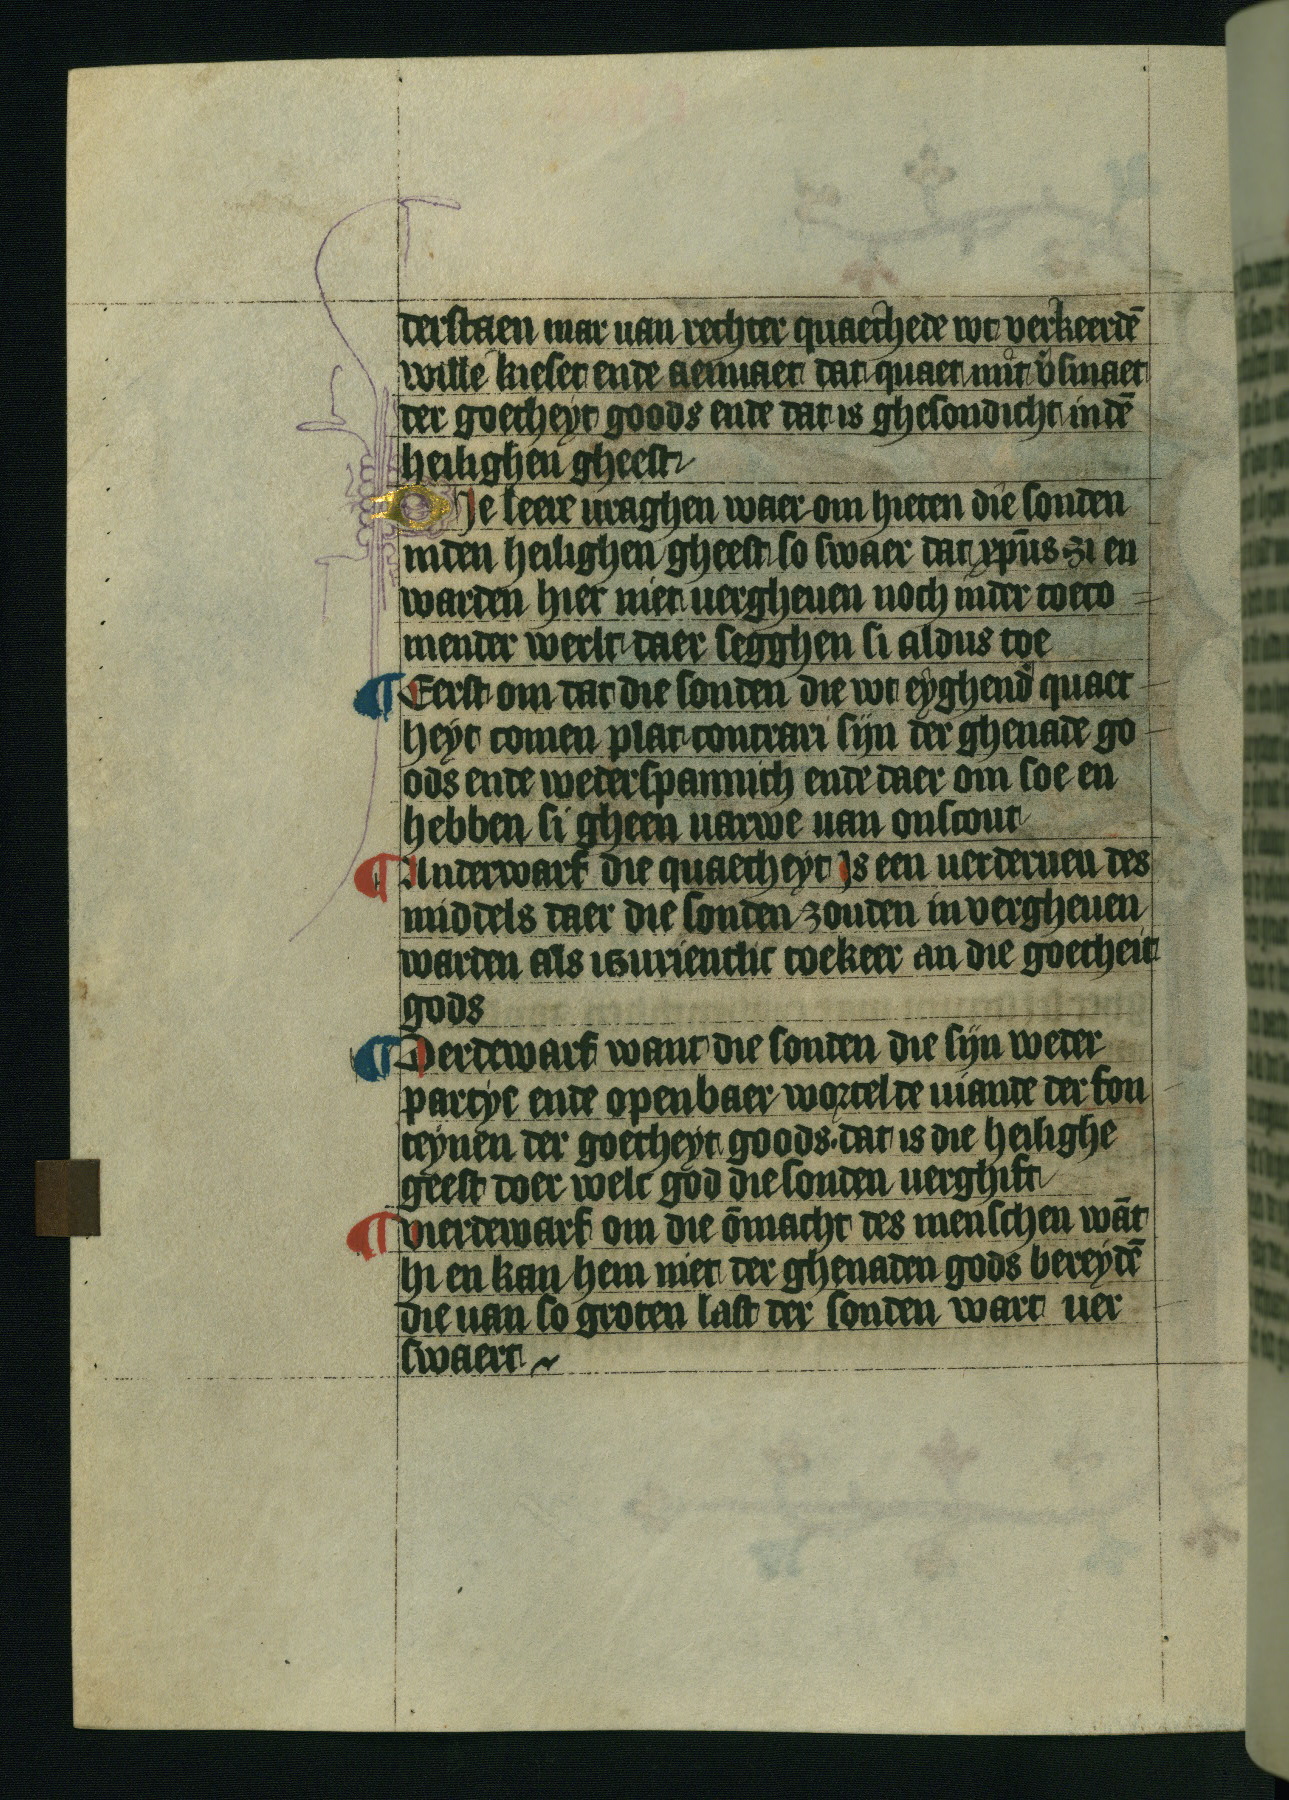 derstaen mar uan rechter quaethede wt verkeerdē
wille kieset ende aenuaet dat quaet mit v̓smaet
der goetheyt goods ende dat is ghesondicht indē
heilighen gheest
Die leere uraghen waer om hieten die sonden
inden heilighen gheest so swaer dat xpūs zi en
warden hier niet uergheuen noch inder toeco
mender werlt daer segghen si aldus toe
¶ Eerst om dat die sonden die wt eyghend̓ quaet
heyt comen plat contrari sijn der ghenade go
ods ende wederspannich ende daer om soe en
hebben si gheen uarwe uan onscout
¶ Anderwarf die quaetheyt Is een uerderuen des
middels daer die sonden zouden in vergheuen
warden als is urientlic toekeer an die goetheit
gods
¶ Derdewarf want die sonden die sijn weder
partye ende openbaer wortel de uiande der fon
teynen der goetheyt goods. dat is die heilighe
geest doer welc god die sonden uerghift
¶ vierdewarf om die ōmacht des menschen wāt
hi en kan hem niet der ghenaden gods bereydē
die uan so groten last der sonden wart uer
swaert